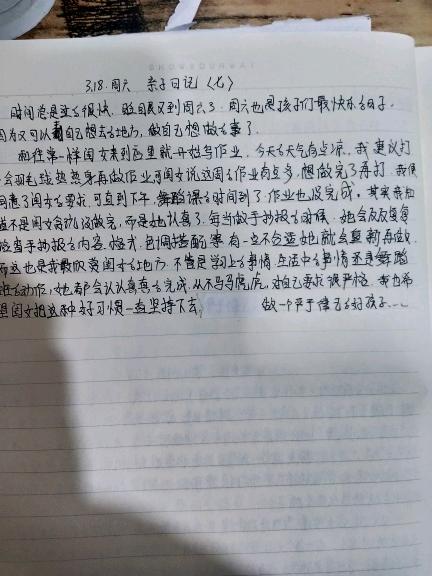 3.18.周六 亲子日记〈七〉
时间总是过的很快,眨眼又到周六了.周六也是孩子们最快乐的日子.
因为又可以去自己想去的地方,做自己想做的事了.
和往常一样闺女来到店里就开始写作业.今天的天气有点凉,我提议打
一会羽毛球热热身再做作业可闺女说这周的作业有点多,想做完了再打.我便
同意了闺女的要求.可直到下午,舞蹈课的时间到了.作业也没完成.其实我知
道不是闺女贪玩没做完,而是她认真了.每当做手抄报的时候.她会反反复复
检查手抄报的内容.格式.色调搭配等有一点不合适她就会重新再做.
而这也是我最欣赏闺女的地方.不管是学习上的事情生活中的事情还是舞蹈
班的动作,她都会认认真真的完成.从不马马虎虎,对自己要求很严格.我也希
望闺女把这种好习惯一直坚持下去, 做一个严于律己的好孩子...